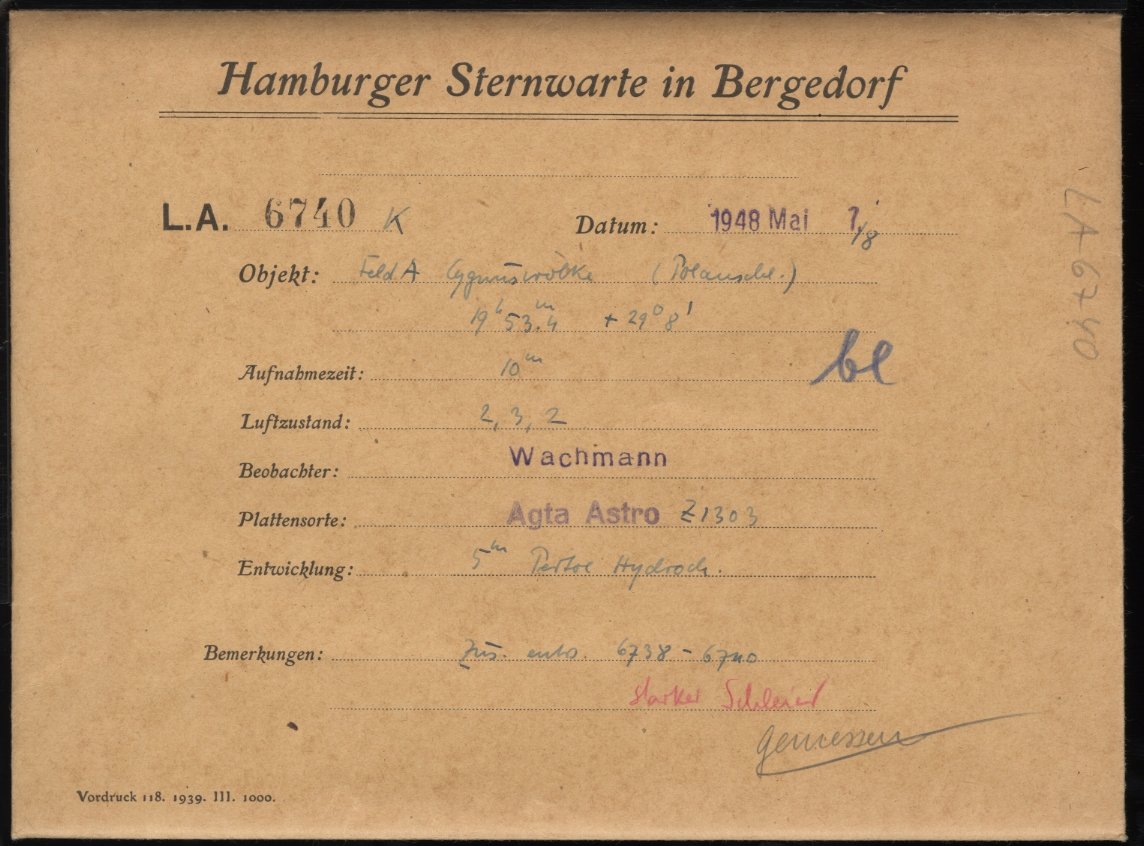 Hamburger Sternwarte in Bergedorf
L.A. 6740 K Datum: 1948 Mai 7/8
Objekt: Feld A Cygnuswolke
19h 53.m4 + 29° 8'
bl
Aufnahmezeit: 10m
Luftzustand: 2, 3, 2
Beobachter: Wachmann
Plattensorte: Agfa Astro Z1303
Entwicklung: 5m Hydroch.
Bemerkungen: Zus. entw. 6738 - 6740
starker Schleier
gemessen
Vordruck 118. 1939. III. 1000.
LA 6740